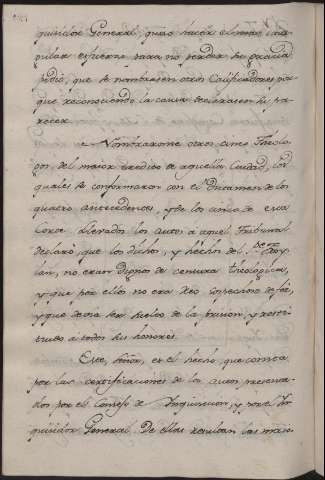 quisidor General, quiso hacer el mas sin
gular esfuerzo para no perder su gracia
pidio, que se nombrasen otros Calificadores, por
que reconociendo la causa declarasen su pa
recer.
Nombraronse otros cinco Theolo
gos, del maior credito de aquella Ciudad, los
quales se conformaron con el Dictamen de los
quatro antecedentes, y de los cinco de esta
Corte. Llevados los autos a aquel Tribunal
declaró, que los dichos, y hechos del
lan, no eran dignos de censura theologica,
y que por ellos no era Reo sospechoso de fée,
y que devia ser suelto de la prision, y resti
tuido a todos sus honores.
Este, Señor, es el hecho, que consta
por las certificaciones de los autos presenta
dos por el Consejo de Inquisicion, y por el In
quisidor General. De ellas resultan las maio